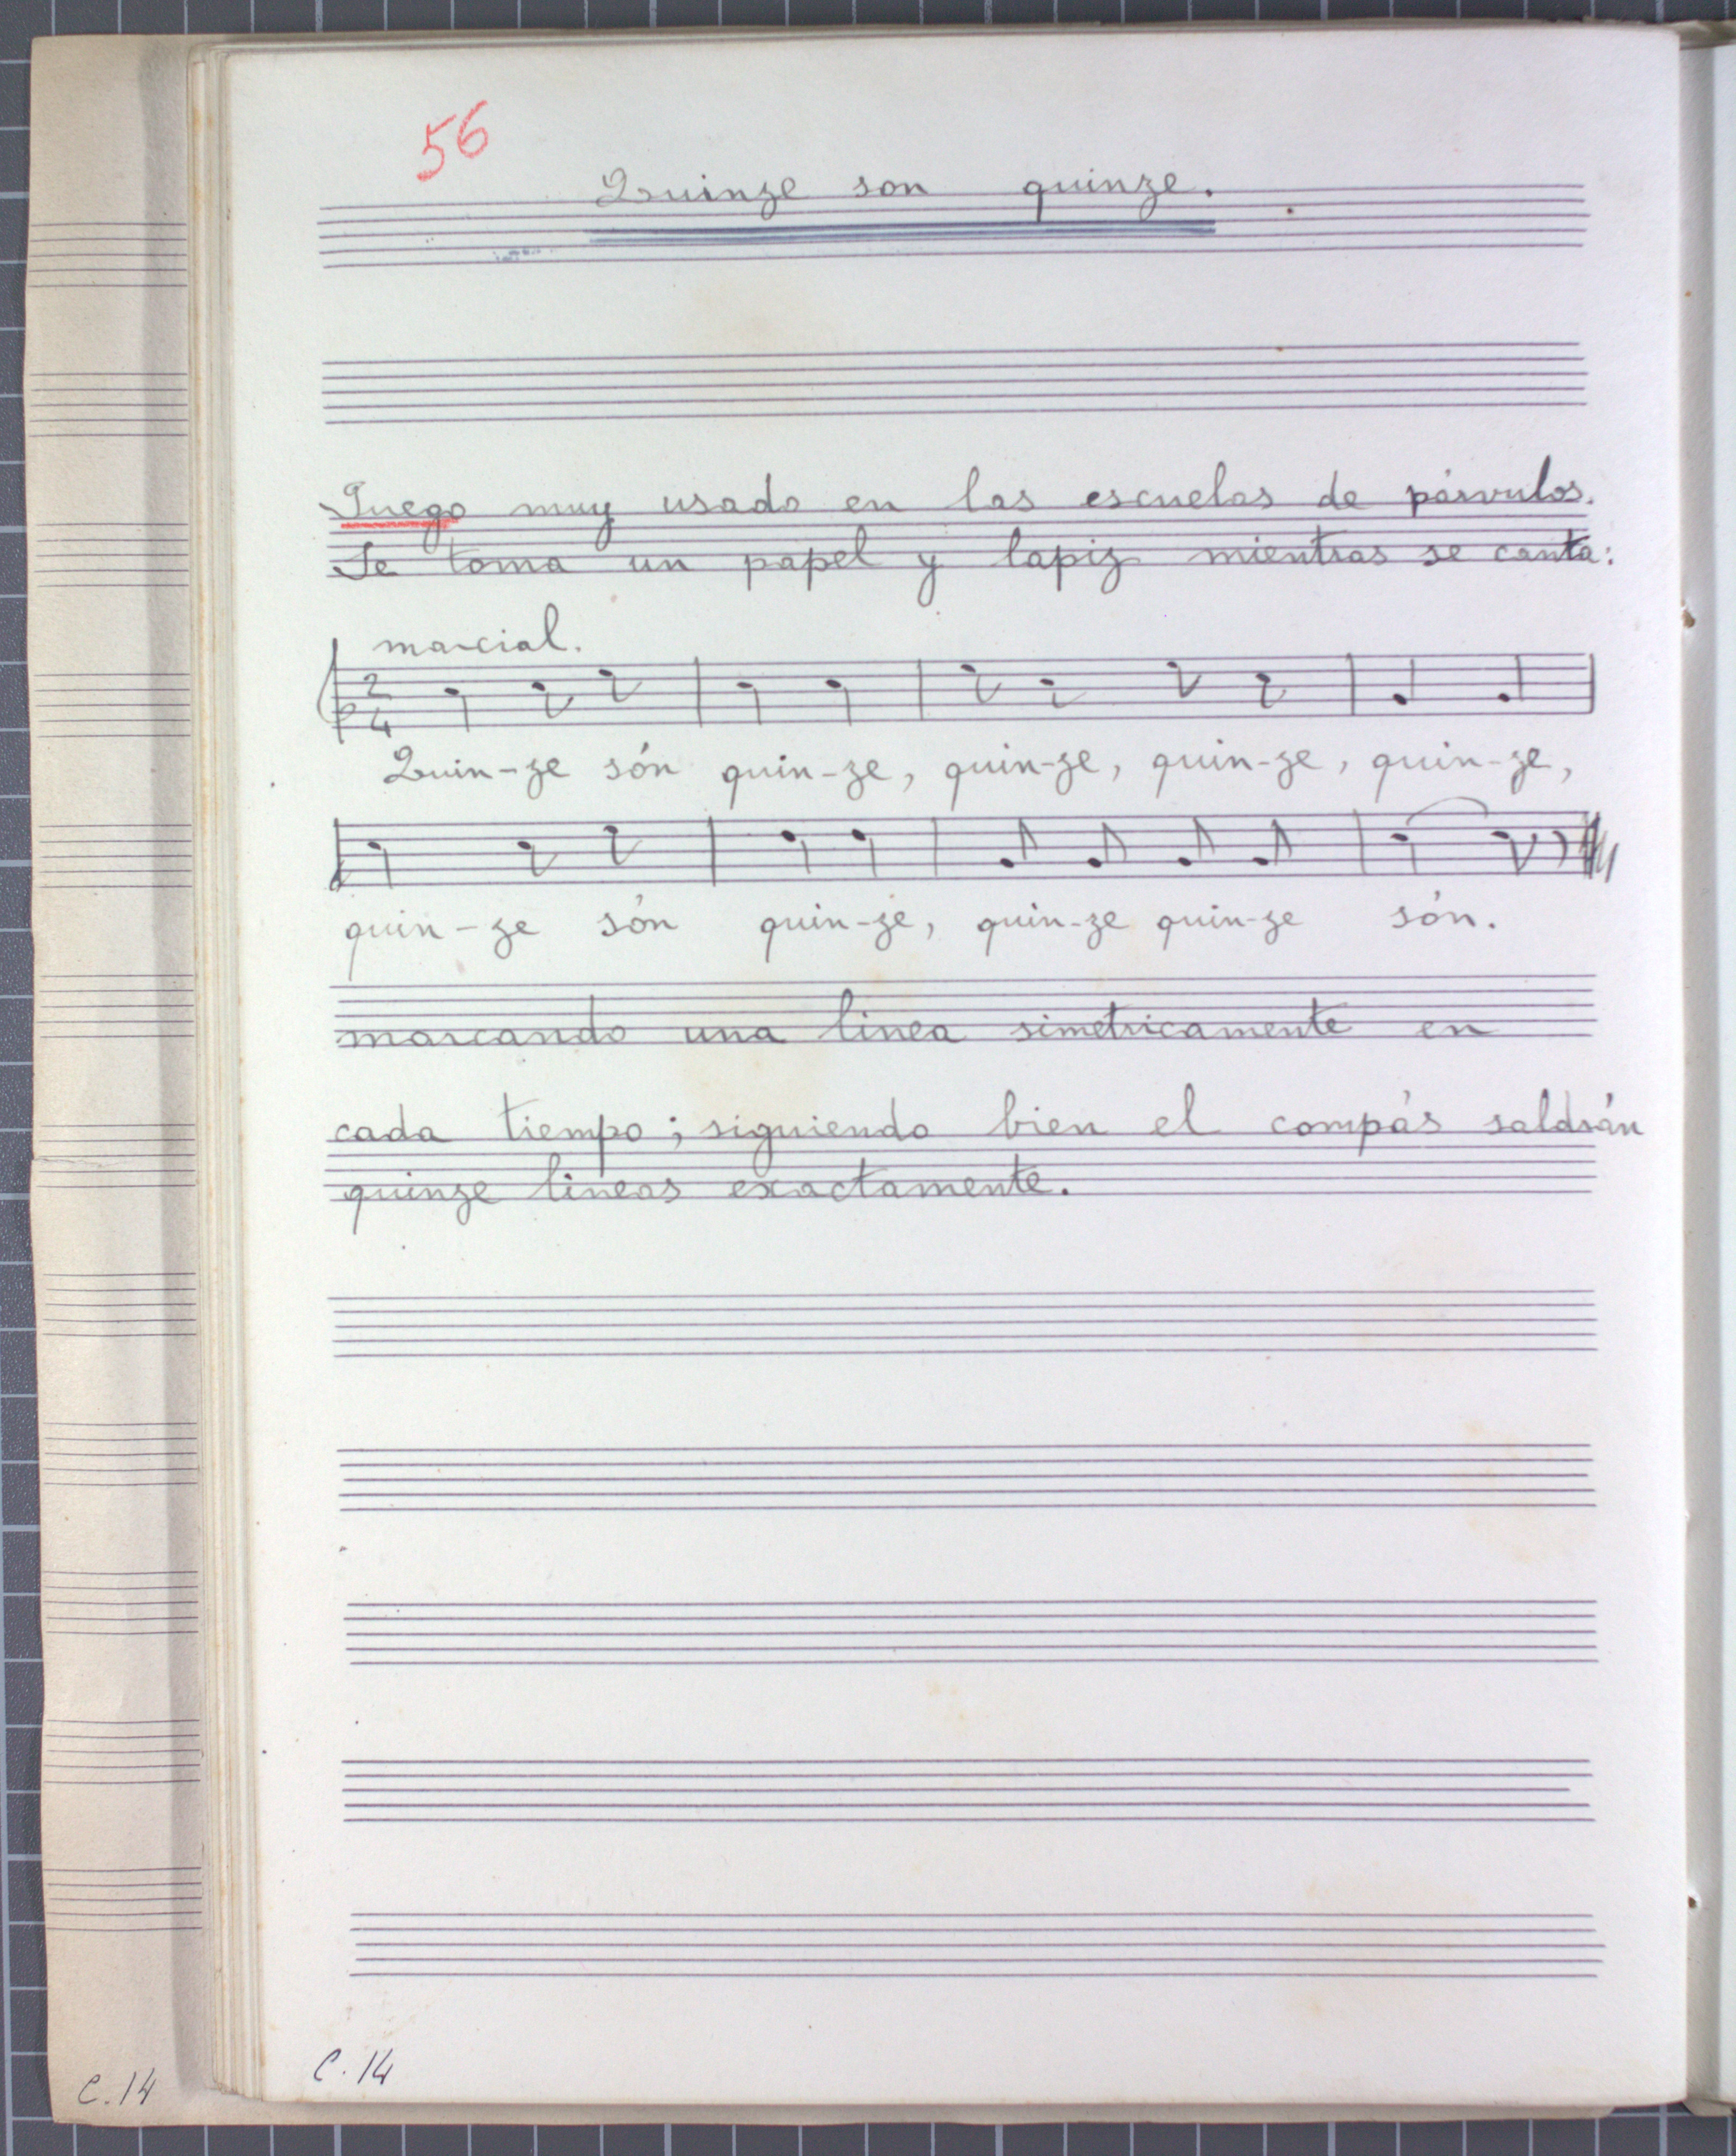 56
Quinze son quinze.
Juego muy usado en las escuelas de párvulos.
Se toma un papel y lapiz mientras se canta:
marcial.
2
4
Quin-ze són quin-ze, quin-ze, quin-ze, quin-ze,
quin-ze són quin-ze, quin-ze quin-ze són.
marcando una linea simetricamente en
cada tiempo; siguiendo bien el compás saldrán
quinze lineas exactamente.
C.14
C.14